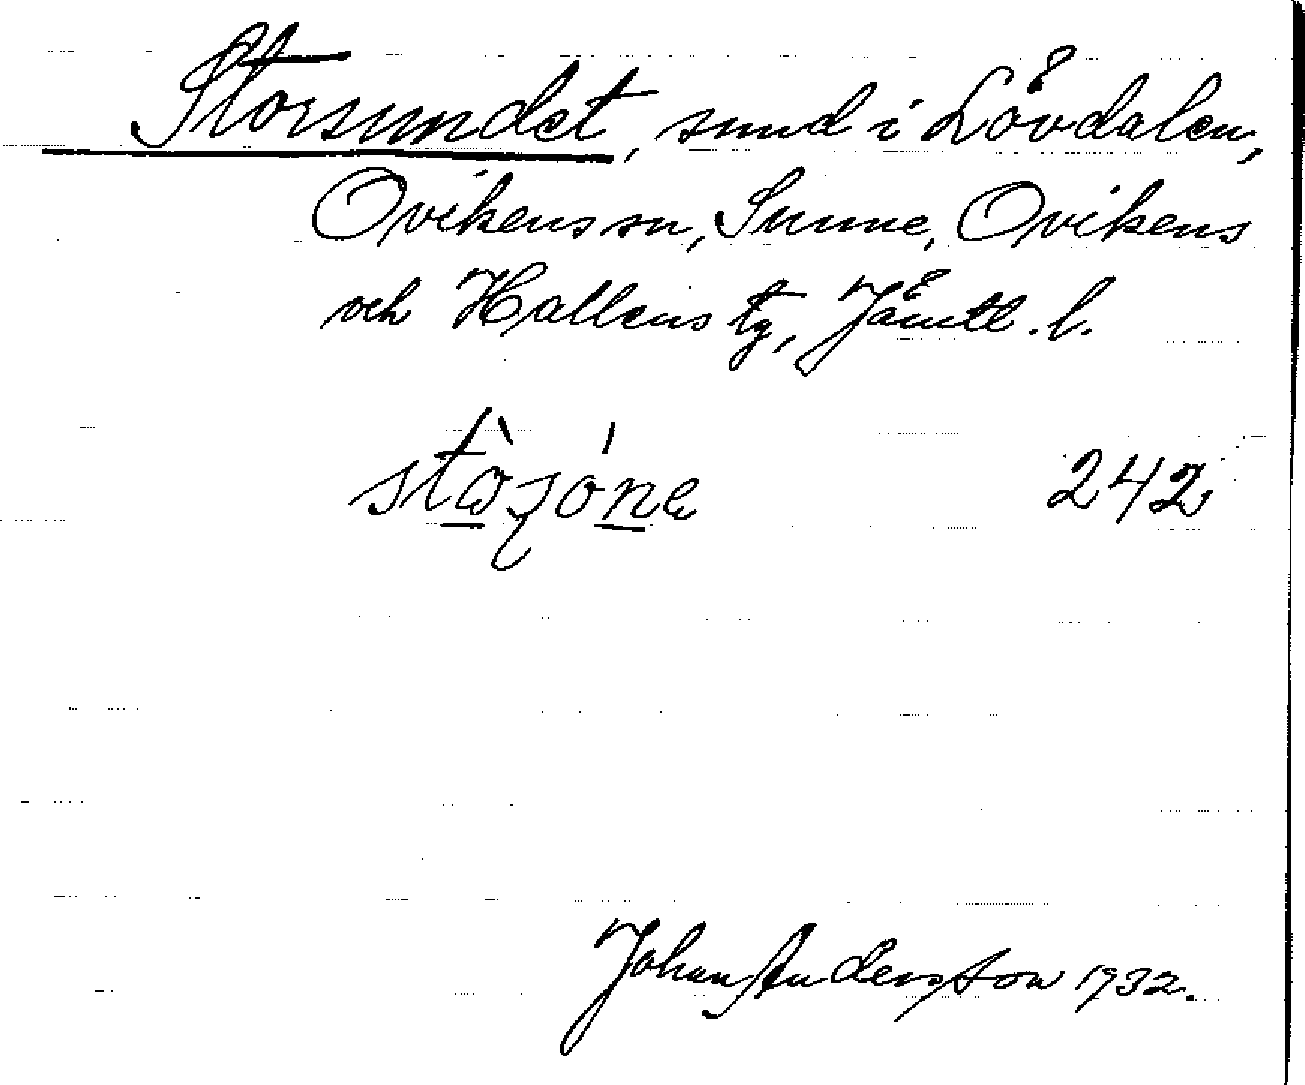 Storsundet, sund i Lövdalen,
Ovikens sn, Sunne, Ovikens
och Hallens tg, Jämtl. l.
242
Johan Andersson 1932.